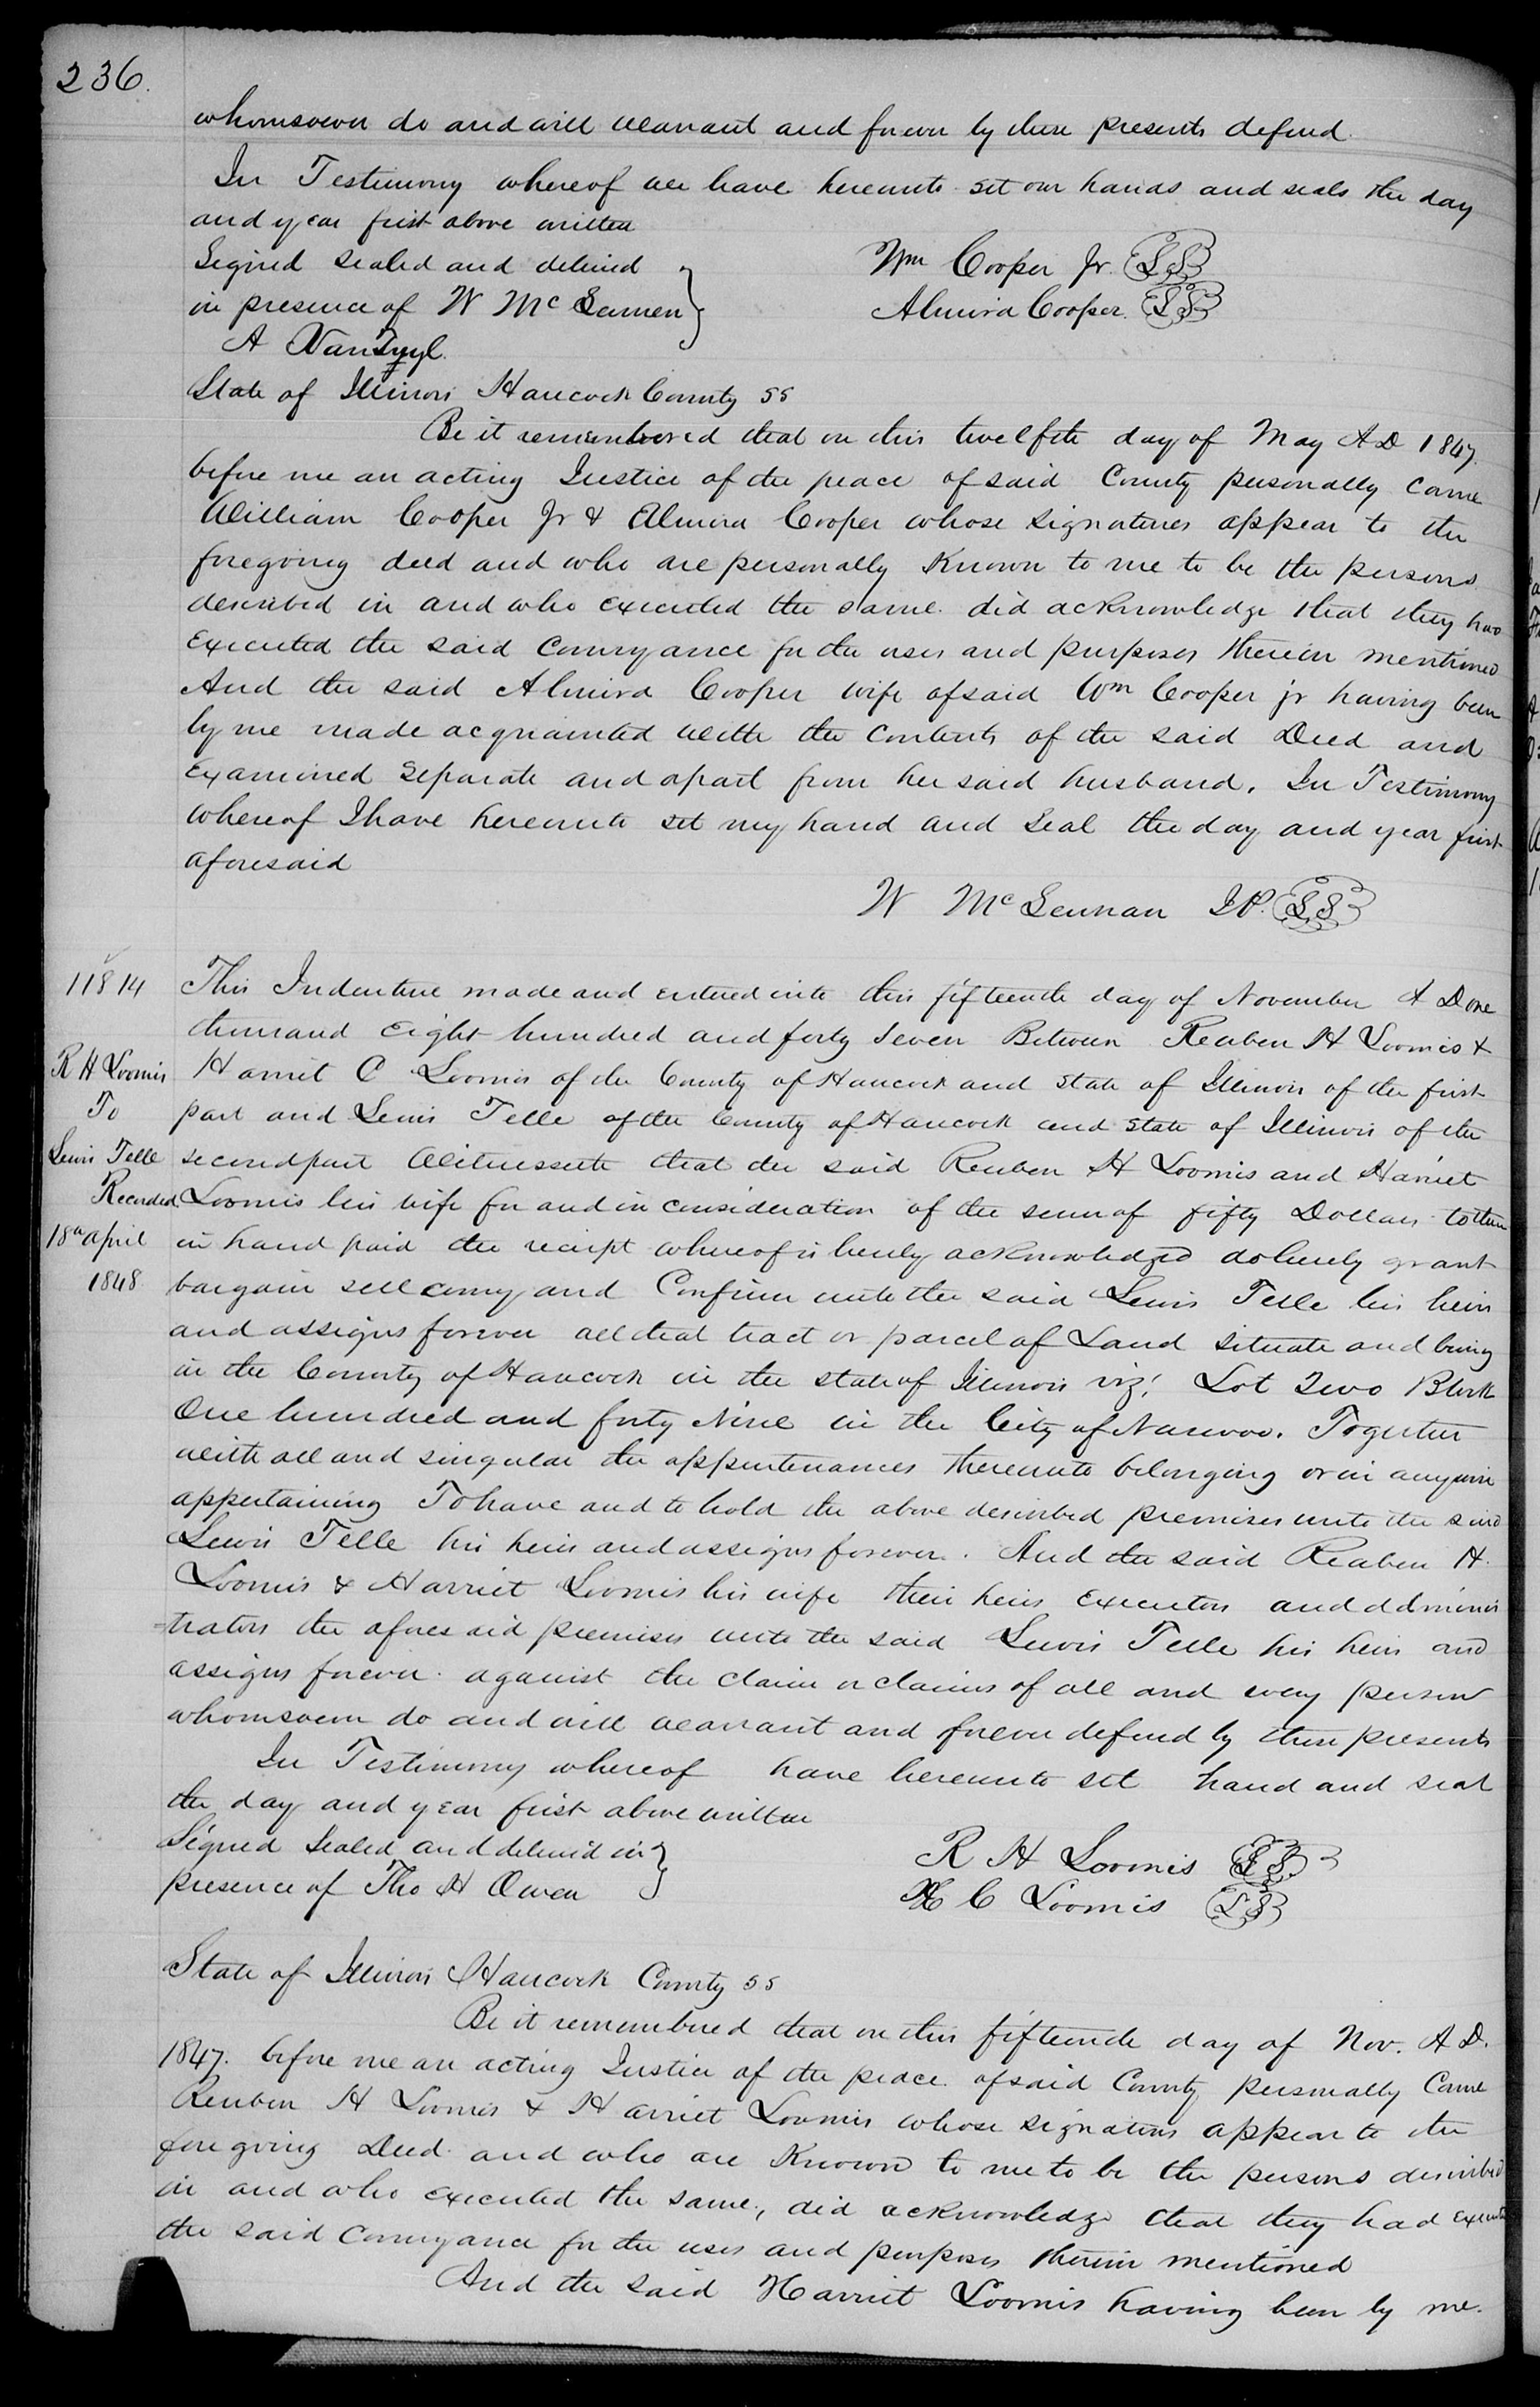 236.
whomsoever do and will warrant and forever by these presents defend.
In Testimony whereof we have hereunto set our hands and seals the day
and year first above written
Signed sealed and deliverd
in presence of W Mc Lennen }
A VanTuyl.
Wm Cooper Jr. LS
Almira Cooper. LS
State of Illinois Hancock County ss
Be it remembered that on this twelfth day of May A D 1847.
before me an acting Justice of the peace of said County personally came
William Cooper Jr & Almira Cooper whose signatures appear to the
foregoing deed and who are personally Known to me to be the persons
described in and who executed the same. did acknowledge that they had
executed the said conveyance for the uses and purposes therein mentioned
And the said Almira Cooper wife of said Wm Cooper jr having been
by me made acquainted with the contents of the said Deed and
examined separate and apart from her said husband. In Testimony
whereof I have hereunto set my hand and seal the day and year first
aforesaid
W Mc Lennan J.P. LS
11814
R H Loomis
To
Lewis Telle
Recorded
18th april
1848
This Indenture made and entered into this fifteenth day of November A D one
thousand eight hundred and forty seven Between Reuben H Loomis &
Harriet C Loomis of the County of Hancock and State of Illinois of the first
part and Lewis Telle of the County of Hancock and State of Illinois of the
second part Witnesseth that the said Reuben H Loomis and Harriet
Loomis his wife for and in consideration of the sum of fifty Dollars to them
in hand paid the receipt whereof is hereby acknowledged do hereby grant
bargain sell convey and Confirm unto the said Lewis Telle his heirs
and assigns forever all that tract or parcel of Land situate and being
in the County of Hancock in the state of Illinois viz: Lot Two Block
One hundred and forty Nine in the City of Nauvoo. Together
with all and singular the appurtenances thereunto belonging or in anywise
appertaining To have and to hold the above described premises unto the said
Lewis Telle his heirs and assigns forever. And the said Reuben H.
Loomis & Harriet Loomis his wife their heirs executors and adminis
=trators the aforesaid premises unto the said Lewis Telle his heirs and
assigns forever. against the claim or claims of all and every person
whomsoever do and will warrant and forever defend by these presents
In Testimony whereof have hereunto set hand and seal
the day and year first above written
Signed sealed and deliverd in }
presence of Tho H Owen
R H Loomis LS
H C Loomis LS
State of Illinois Hancock County ss
Be it remembered that on this fifteenth day of Nov. A D.
1847. before me an acting Justice of the peace of said County personally Came
Reuben H Loomis & Harriet Loomis whose signatures appear to the
foregoing Deed. and who are Known to me to be the persons described
in and who executed the same, did acknowledge that they had executed
the said conveyance for the uses and purposes therein mentioned
And the said Harriet Loomis having been by me.